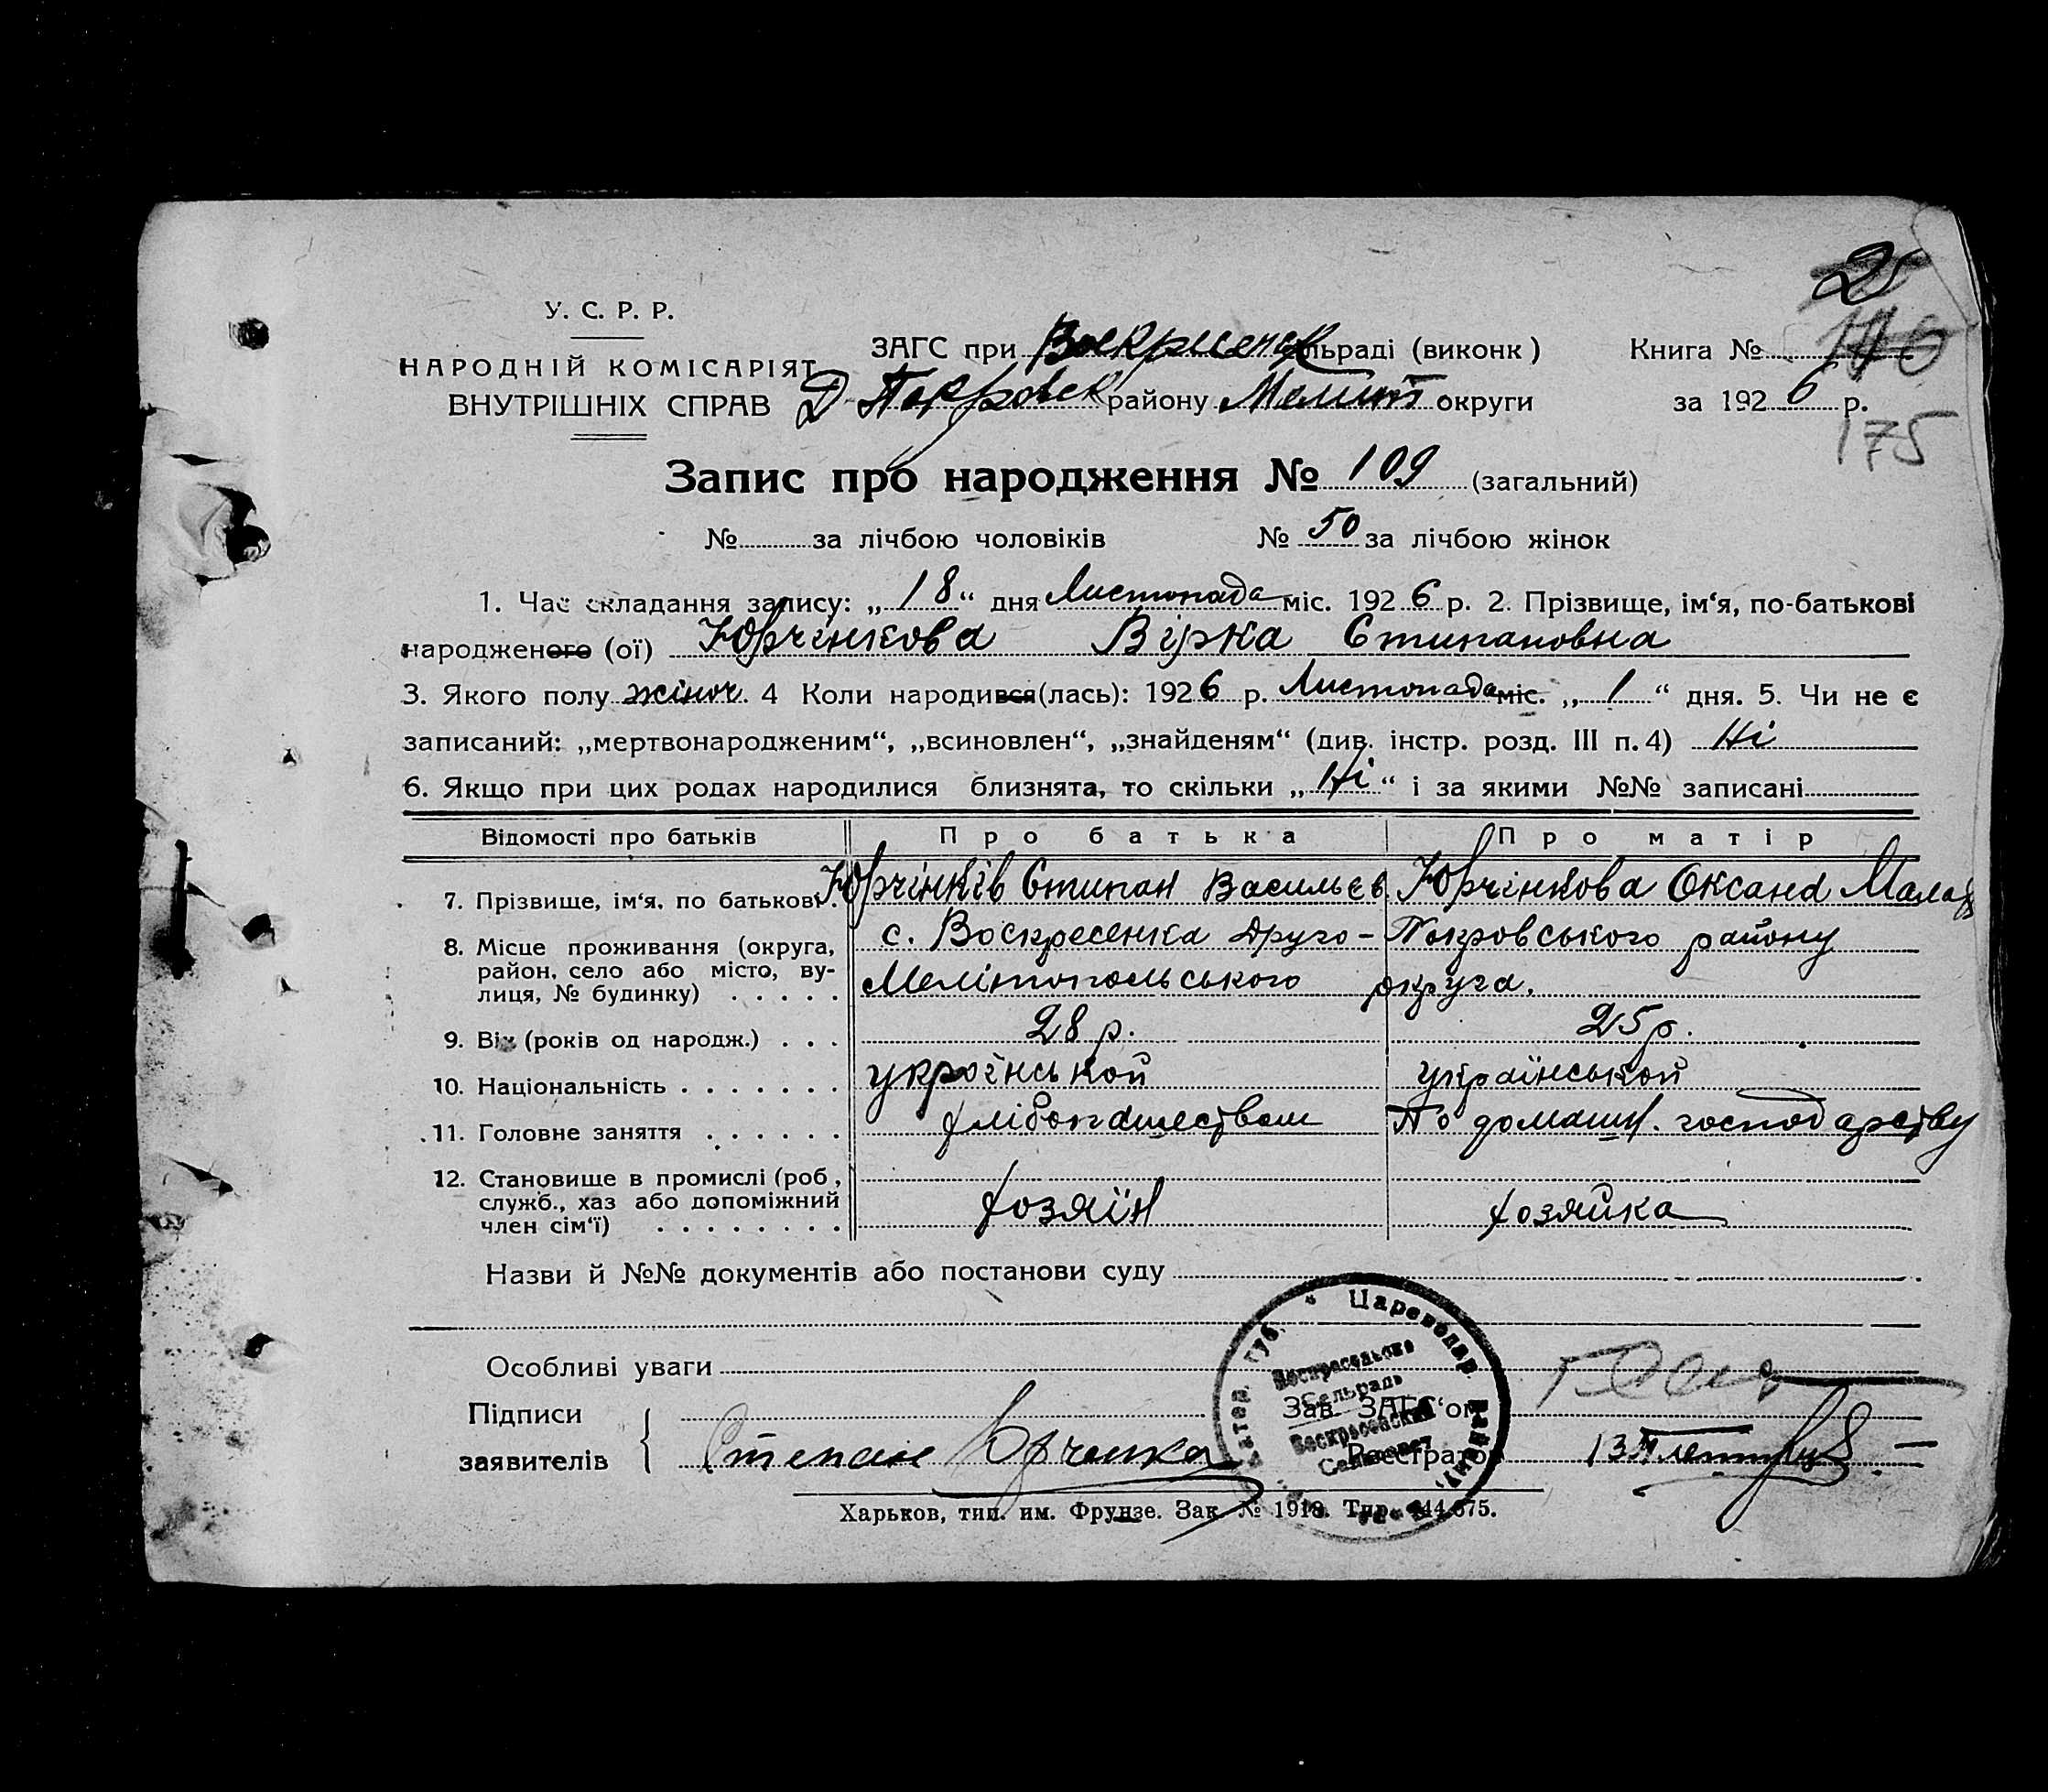 У. С. Р. Р.
НАРОДНІЙ КОМІСАРІЯТ
ВНУТРІШНІХ СПРАВ
ЗАГС при Воскресенск сільраді (виконк)
Д-Покровск району Мелит округи
Книга №
за 1926 р.
175
Запис про народження № 109 (загальний)
№ за лічбою чоловіків № 50 за лічбою жінок
1. Час складання запису: „18“ дня Листопада міс. 1926 р. 2. Прізвище, ім‘я, по-батькові
народженого (ої) Юрчінкова Вірка Стипановна
3. Якого полу жіноч. 4 Коли народився(лась): 1926 р. Листопада міс. „1“ дня. 5. Чи не є
записаний: „мертвонародженим“, „всиновлен“, „знайденям“ (див. інстр. розд. III п. 4) Ні
6. Якщо при цих родах народилися близнята, то скільки „Ні“ і за якими №№ записані
Відомості про батьків Про батька Про матір
7. Прізвище, ім‘я, по батькові. Юрчінків Стипан Васильєв. Юрчінкова Оксана
8. Місце проживання (округа, район, село або місто, вулиця, № будинку) с. Воскресенка Друго-Покровського району
Мелітопольського округа.
9. Вік (років од народж.) 28 р. 25 р.
10. Національність українськой українськой
11. Головне заняття хлібопашеством По домашн. господарству
12. Становище в промислі (роб, служб., хаз або допоміжний член сім‘ї) хозяїн хозяйка
Назви й №№ документів або постанови суду
Особливі уваги
Підписи
заявителів
Степан Юрченко
Зав. ЗАГС‘ом
Реестратор
Цареводар. району
Воскресенская
Сельрада
Харьков, тип. им. Фрунзе. Зак. № 1918. Тир.